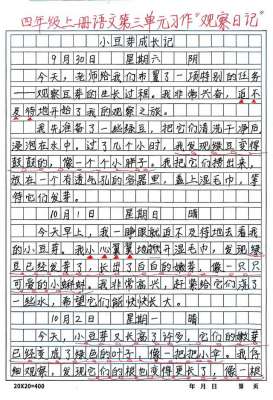 四年级上册语文第三单元习作“观察日记”
小豆芽成长记
9月30日 星期六 阴
今天，老师给我们布置了一项特别的任务
——观察豆芽的生长过程。我非常兴奋，迫不
及待地开始了我的观察之旅。
我先准备了一些绿豆，把它们清洗干净后
浸泡在水中。过了几个小时，我发现绿豆变得
鼓鼓的，像一个个小胖子。我把它们捞出来，
放在一个有透气孔的容器里，盖上湿毛巾，等
待它们发芽。
10月1日 星期日 晴
今天早上，我一睁眼就迫不及待地去看我
的小豆芽。我小心翼翼地掀开湿毛巾，发现绿
豆已经发芽了，长出了白白的嫩芽，像一只只
可爱的小蝌蚪。我非常高兴，赶紧给它们浇了
一些水，希望它们能快快长大。
10月2日 星期一 晴
今天，小豆芽又长高了许多，它们的嫩芽
已经变成了绿色的叶子，像一把把小伞。我仔
细观察，发现它们的根也变得更长了，像一根
20X20=400 年 月 日 第 页